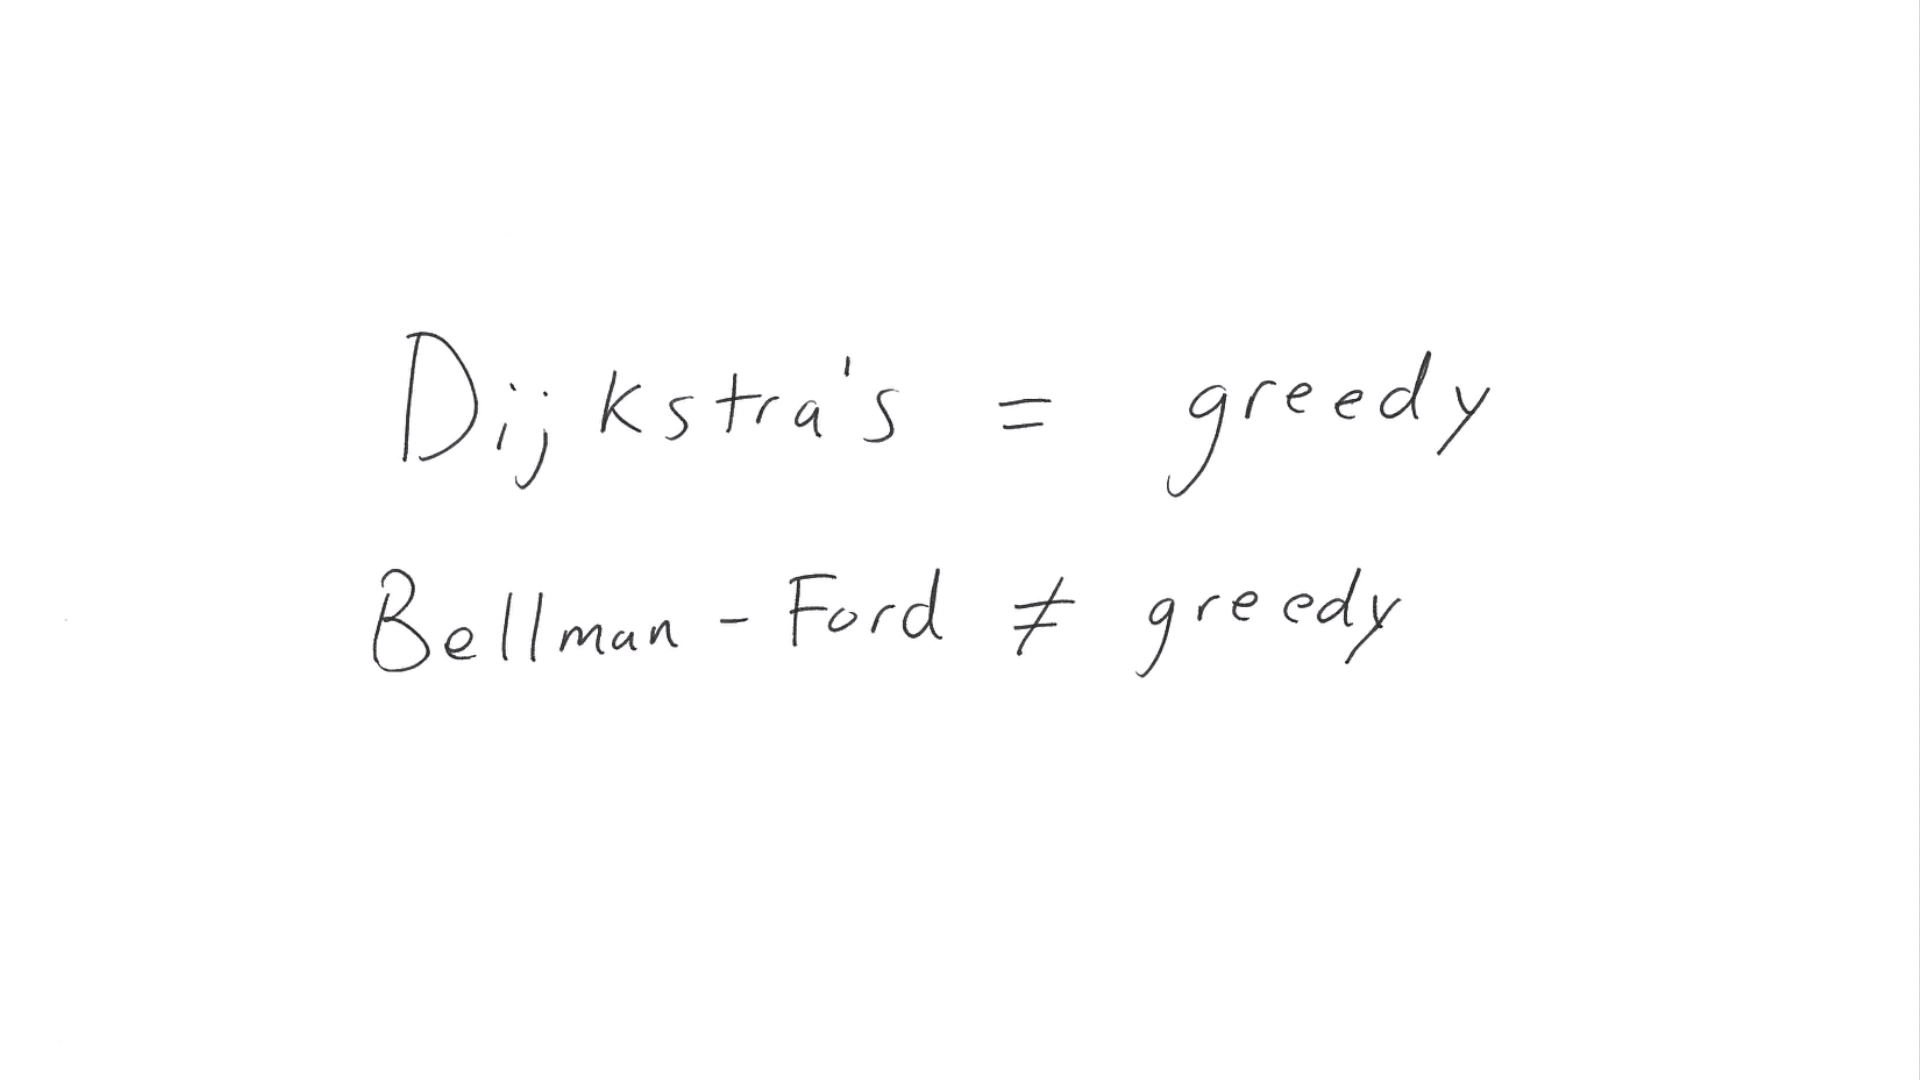 Dijkstra's = greedy
Bellman-Ford ≠ greedy